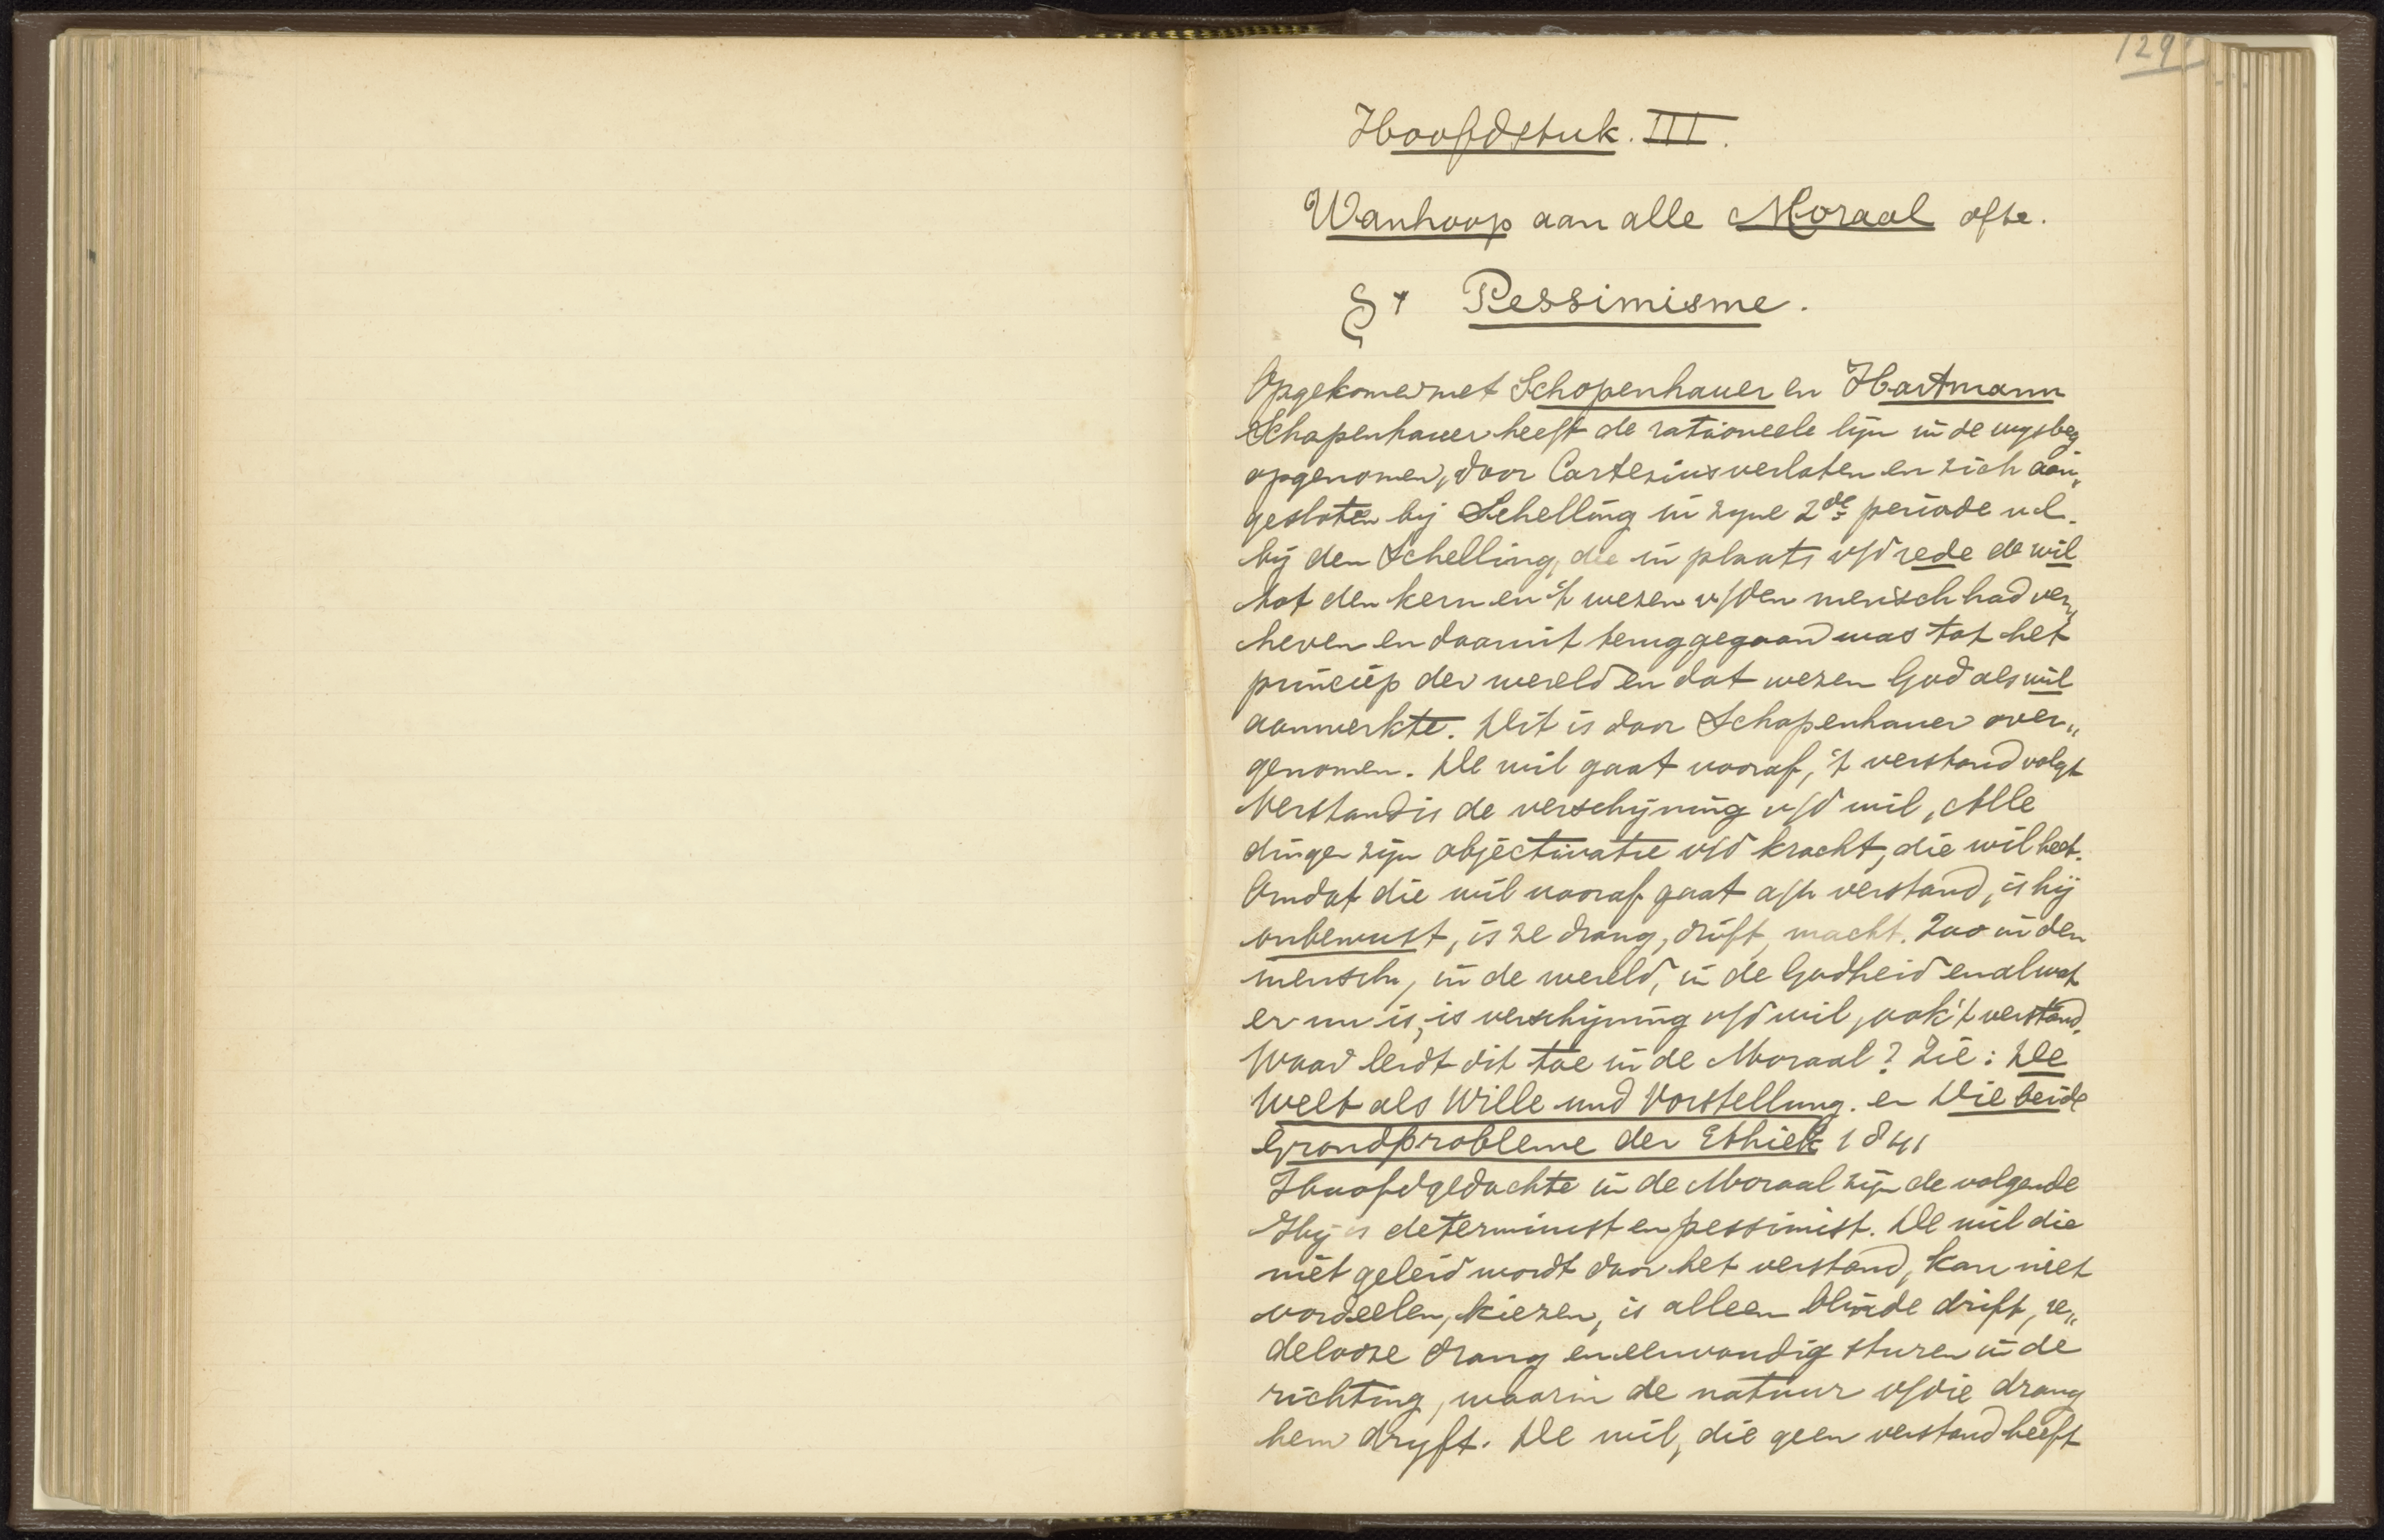 129
Hoofdstuk. III.
Wanhoop aan alle Moraal ofte.
§ 1 Pessimisme.
Opgekomen met Schopenhauer en Hartmann
Schopenhauer heeft de rationeele lijn in de wysbeg
opgenomen, door Cartesius verlaten en zich aan„
gesloten bij Schelling in zyne 2de periode n.l.
bij den Schelling, die in plaats v/d rede de wil
tot den kern en 't wezen v/den mensch had ver„
heven en daaruit teruggegaan was tot het
princiep der wereld en dat wezen God als wil
aanmerkte. Dit is door Schopenhauer over„
genomen. De wil gaat vooraf, 't verstand volgt
Verstand is de verschijning v/d wil, Alle
dingen zijn objectivatie v/d kracht, die wil heet.
Omdat die wil vooraf gaat a/h verstand, is hij
onbewust, is ze drang, drift, macht. Zoo in den
mensch, in de wereld, in de Godheid en al wat
er nu is, is verschijning v/d wil, ook 't verstand.
Waar leidt dit toe in de Moraal? Zie: De
Welt als Wille und Vorstellung. en Die beide
Grondprobleme der Ethiek 1841
Hoofdgedachte in de Moraal zijn de volgende
Hij is determinist en pessimist. De wil die
niet geleid wordt door het verstand, kan niet
oordeelen, kiezen, is alleen blinde drift, re„
delooze drang en eenvoudig sturen in de
richting, waarin de natuur v/die drang
hem dryft. De wil, die geen verstand heeft